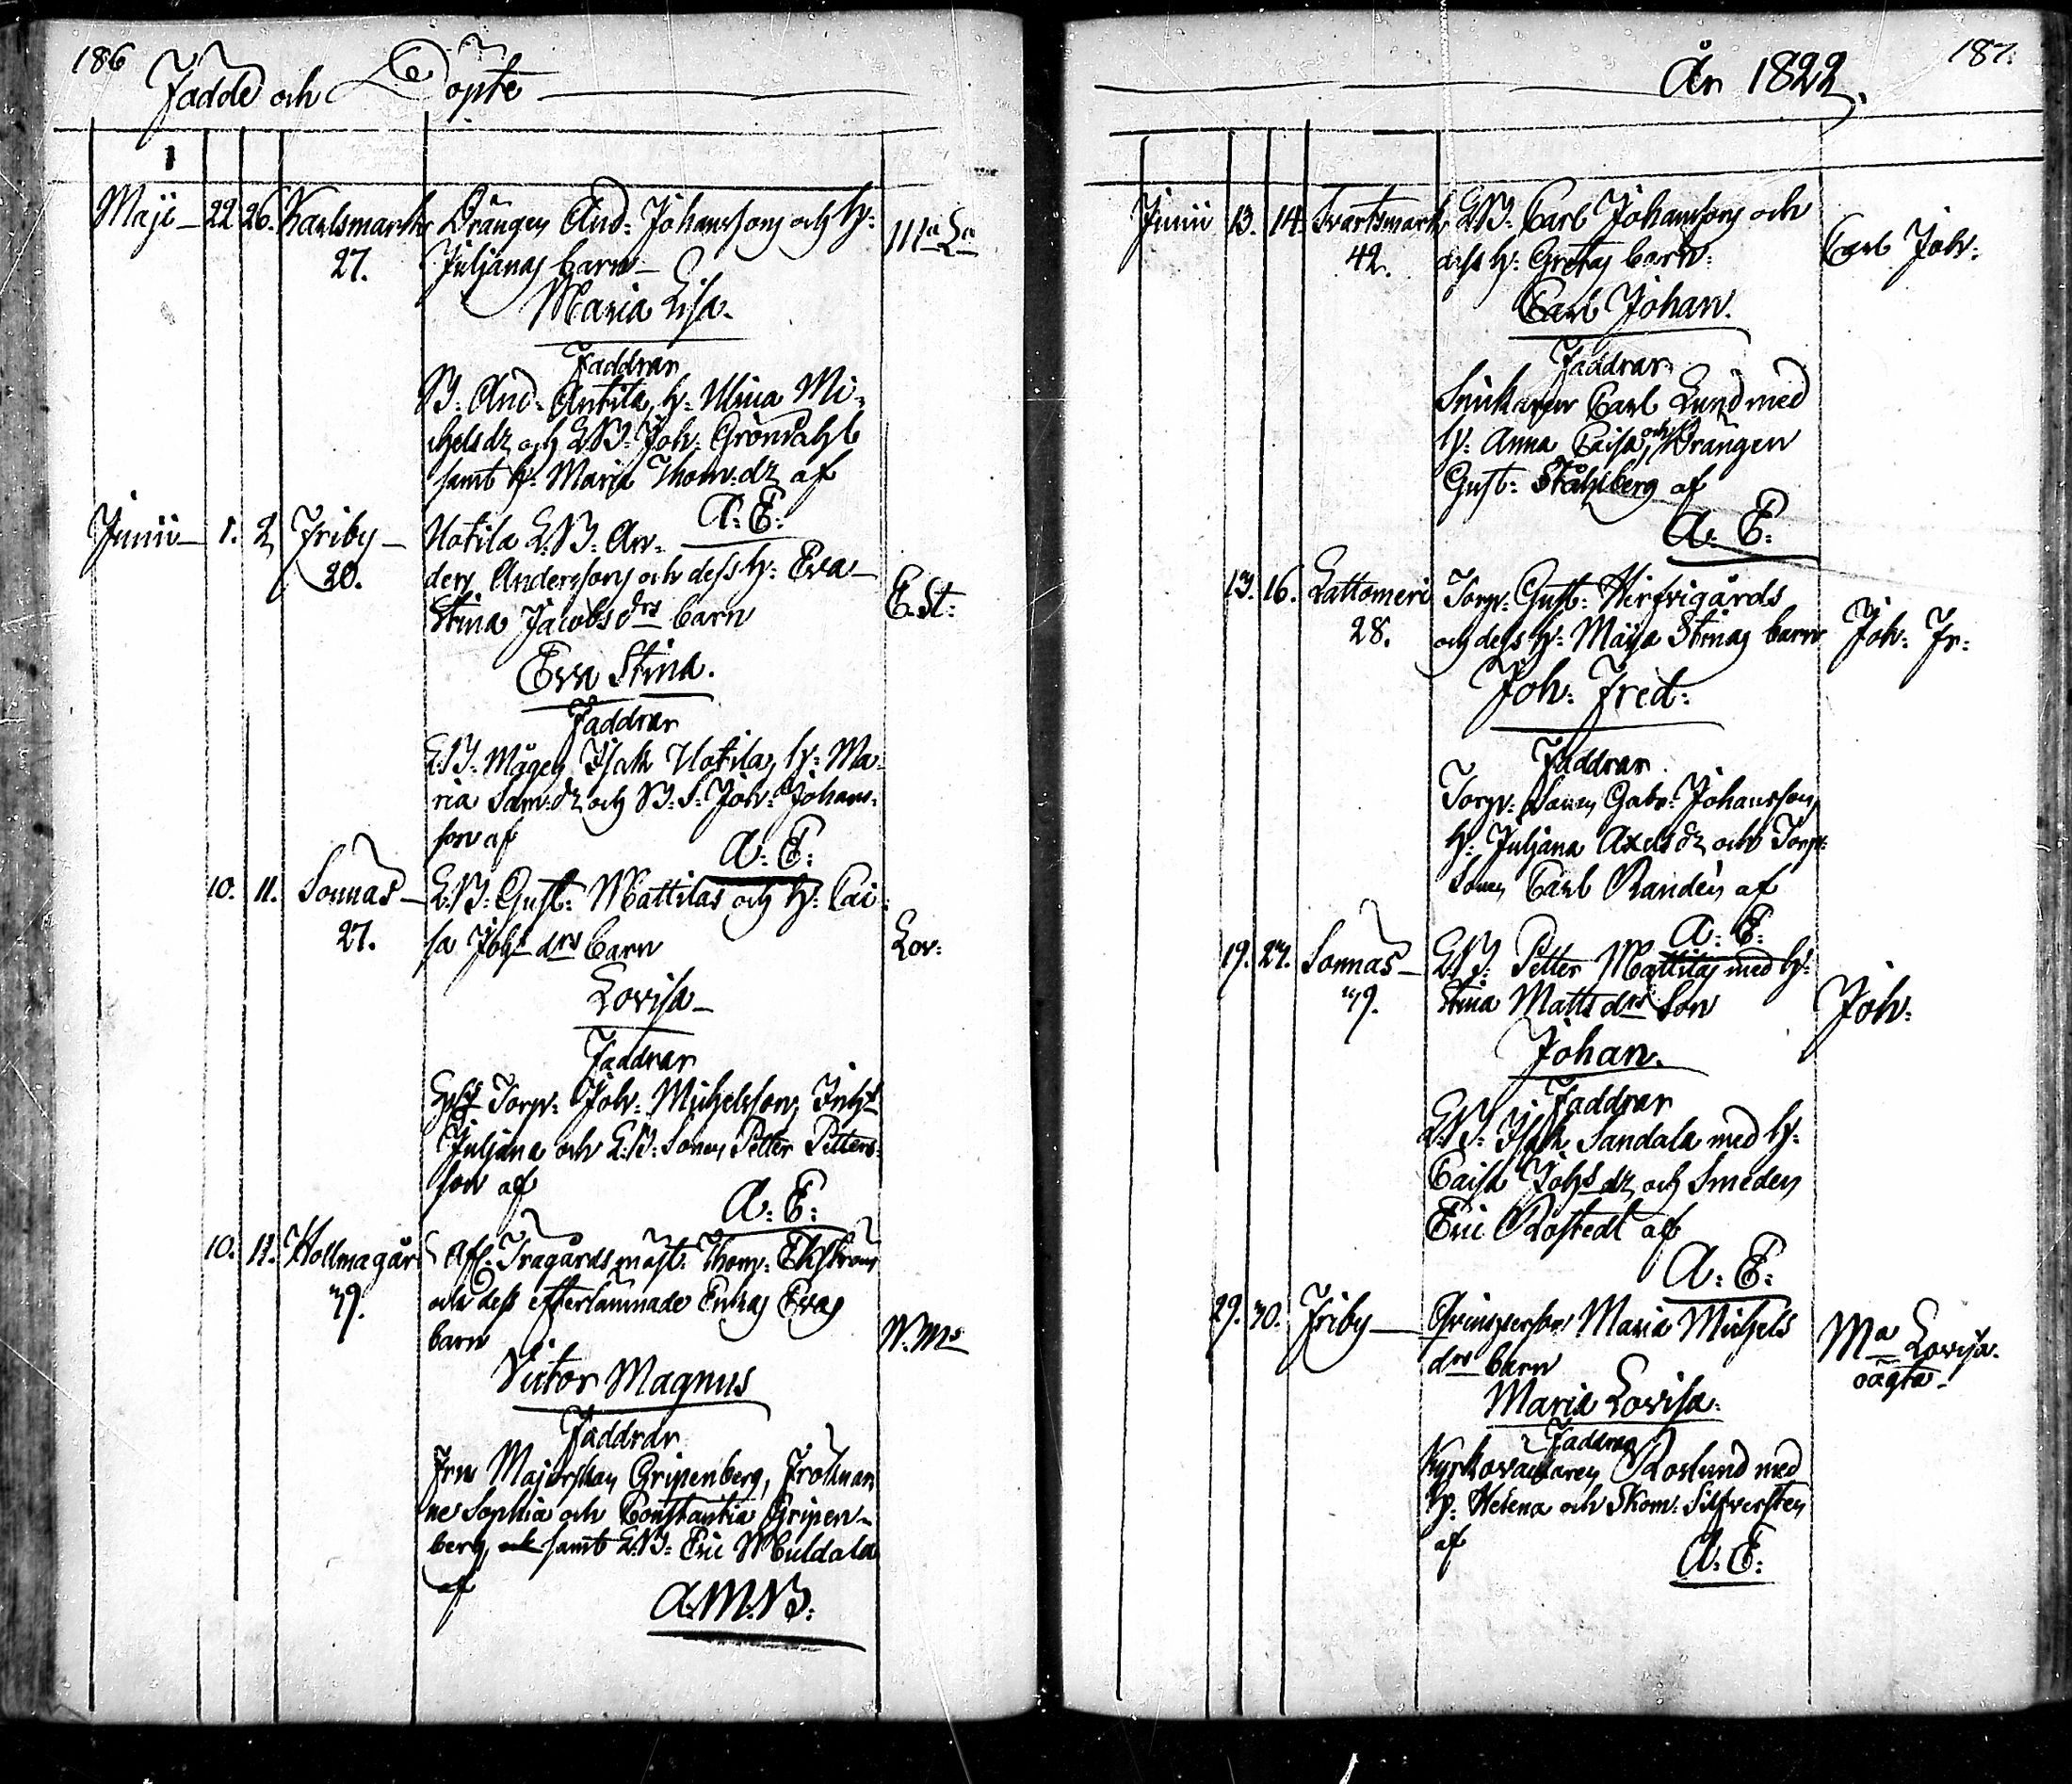 186
Födde och Döpte
Maji 22 26. Karlsmark Drängen And: Johanssons och h:
27. Juljanas barn M:a L:a
Maria Lisa.
Faddrar
B: And: Antila, h: Ulrica Mi-
chelsdr och L.B: Joh: Gröndahl
samt h: Maria Thom:dr af
A: E:
Junii 1. 2 Friby Uotila L.B: An-
20. ders Anderssons och dess h: Eva
Stina Jacobsdrs barn E. St:
Eva Stina.
Faddrar
L.B: Mågen Isak Uotila, h: Ma-
ria Sam:dr och B:S: Joh: Johans-
son af
A: E:
10. 11. Sonnäs L.B: Gust: Mattilas och h: Cai-
27. sa Johsdrs barn Lov:
Lovisa
Faddrar
Torp: Joh: Michelsson, Inhs
Juljana och L.B: Sonen Petter Petters-
son af
A: E:
10. 11. Hollmagård Afl: Trägårdsmäst: Thom: Ekström
39. och dess efterlämnade Enkas Evas
barn V. M:s
Victor Magnus
Faddrar
Fru Majorskan Gripenberg, Fröknar-
ne Sophia och Constantia Gripen-
berg, och samt L.B: Eric Muldala
af
A.M.B:
187.
År 1822.
Junii 13. 14. Svartsmark L.B: Carl Johanssons och
42. dess h: Gretas barn Carl Joh:
Carl Johan.
Faddrar
Snickaren Carl Lund med
h: Anna Caisa, och Drängen
Gust: Ståhlberg af
A: E:
13. 16. Lattomeri Torp: Gust: Hirfvigårds
28. och dess h: Maja Stinas barn Joh: Fr:
Joh: Fred:
Faddrar
Torp: Sonen Gabr: Johansson,
h: Juljana Axelsdr och Torp:
Sonen Carl Randén af
A: E:
19. 23. Sonnäs L.B: Petter Mattilas med h:
39. Stina Mattsdrs Son Joh:
Johan.
Faddrar
L.B: Isak Sandala med h:
Caisa Johsdr och Smeden
Eric Rostedt af
A: E:
29. 30. Friby Qvinspersons Maria Michels
drs barn M:a Lovisa.
Maria Lovisa. oägta
Faddrar
Kyrkovaktaren Roslund med
h: Helena och Skom: Silfversten
af
A: E: